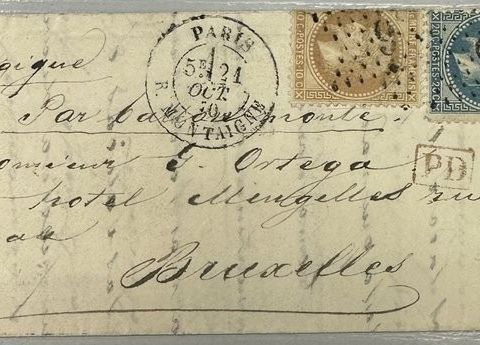 PARIS
5E 21
OCT
70
R. MONTAIGNE
10 C. POSTES 10 C.
20 C. POSTES 20 C.
Par ballon monté.
Monsieur G. Ortega
hotel Mengelles rue
PD
Bruxelles